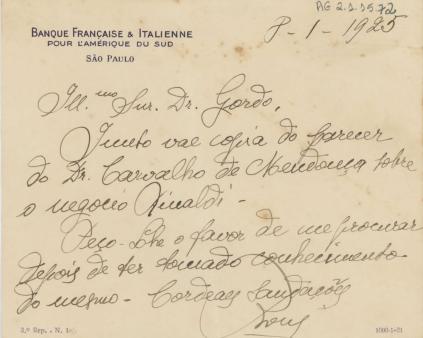 AG 2.1.15.72
BANQUE FRANÇAISE & ITALIENNE
POUR L'AMÉRIQUE DU SUD
SÃO PAULO
8-1-1925
Ill.mo Snr. Dr. Gordo,
Junto vae copia do parecer
do Dr. Carvalho de Mendonça sobre
o negocio Rinaldi-
Peço-lhe o favor de me procurar
depois de ter tomado conhecimento
do mesmo- Cordeaes Saudações
3.ª Sep. - N.
1000-1-21